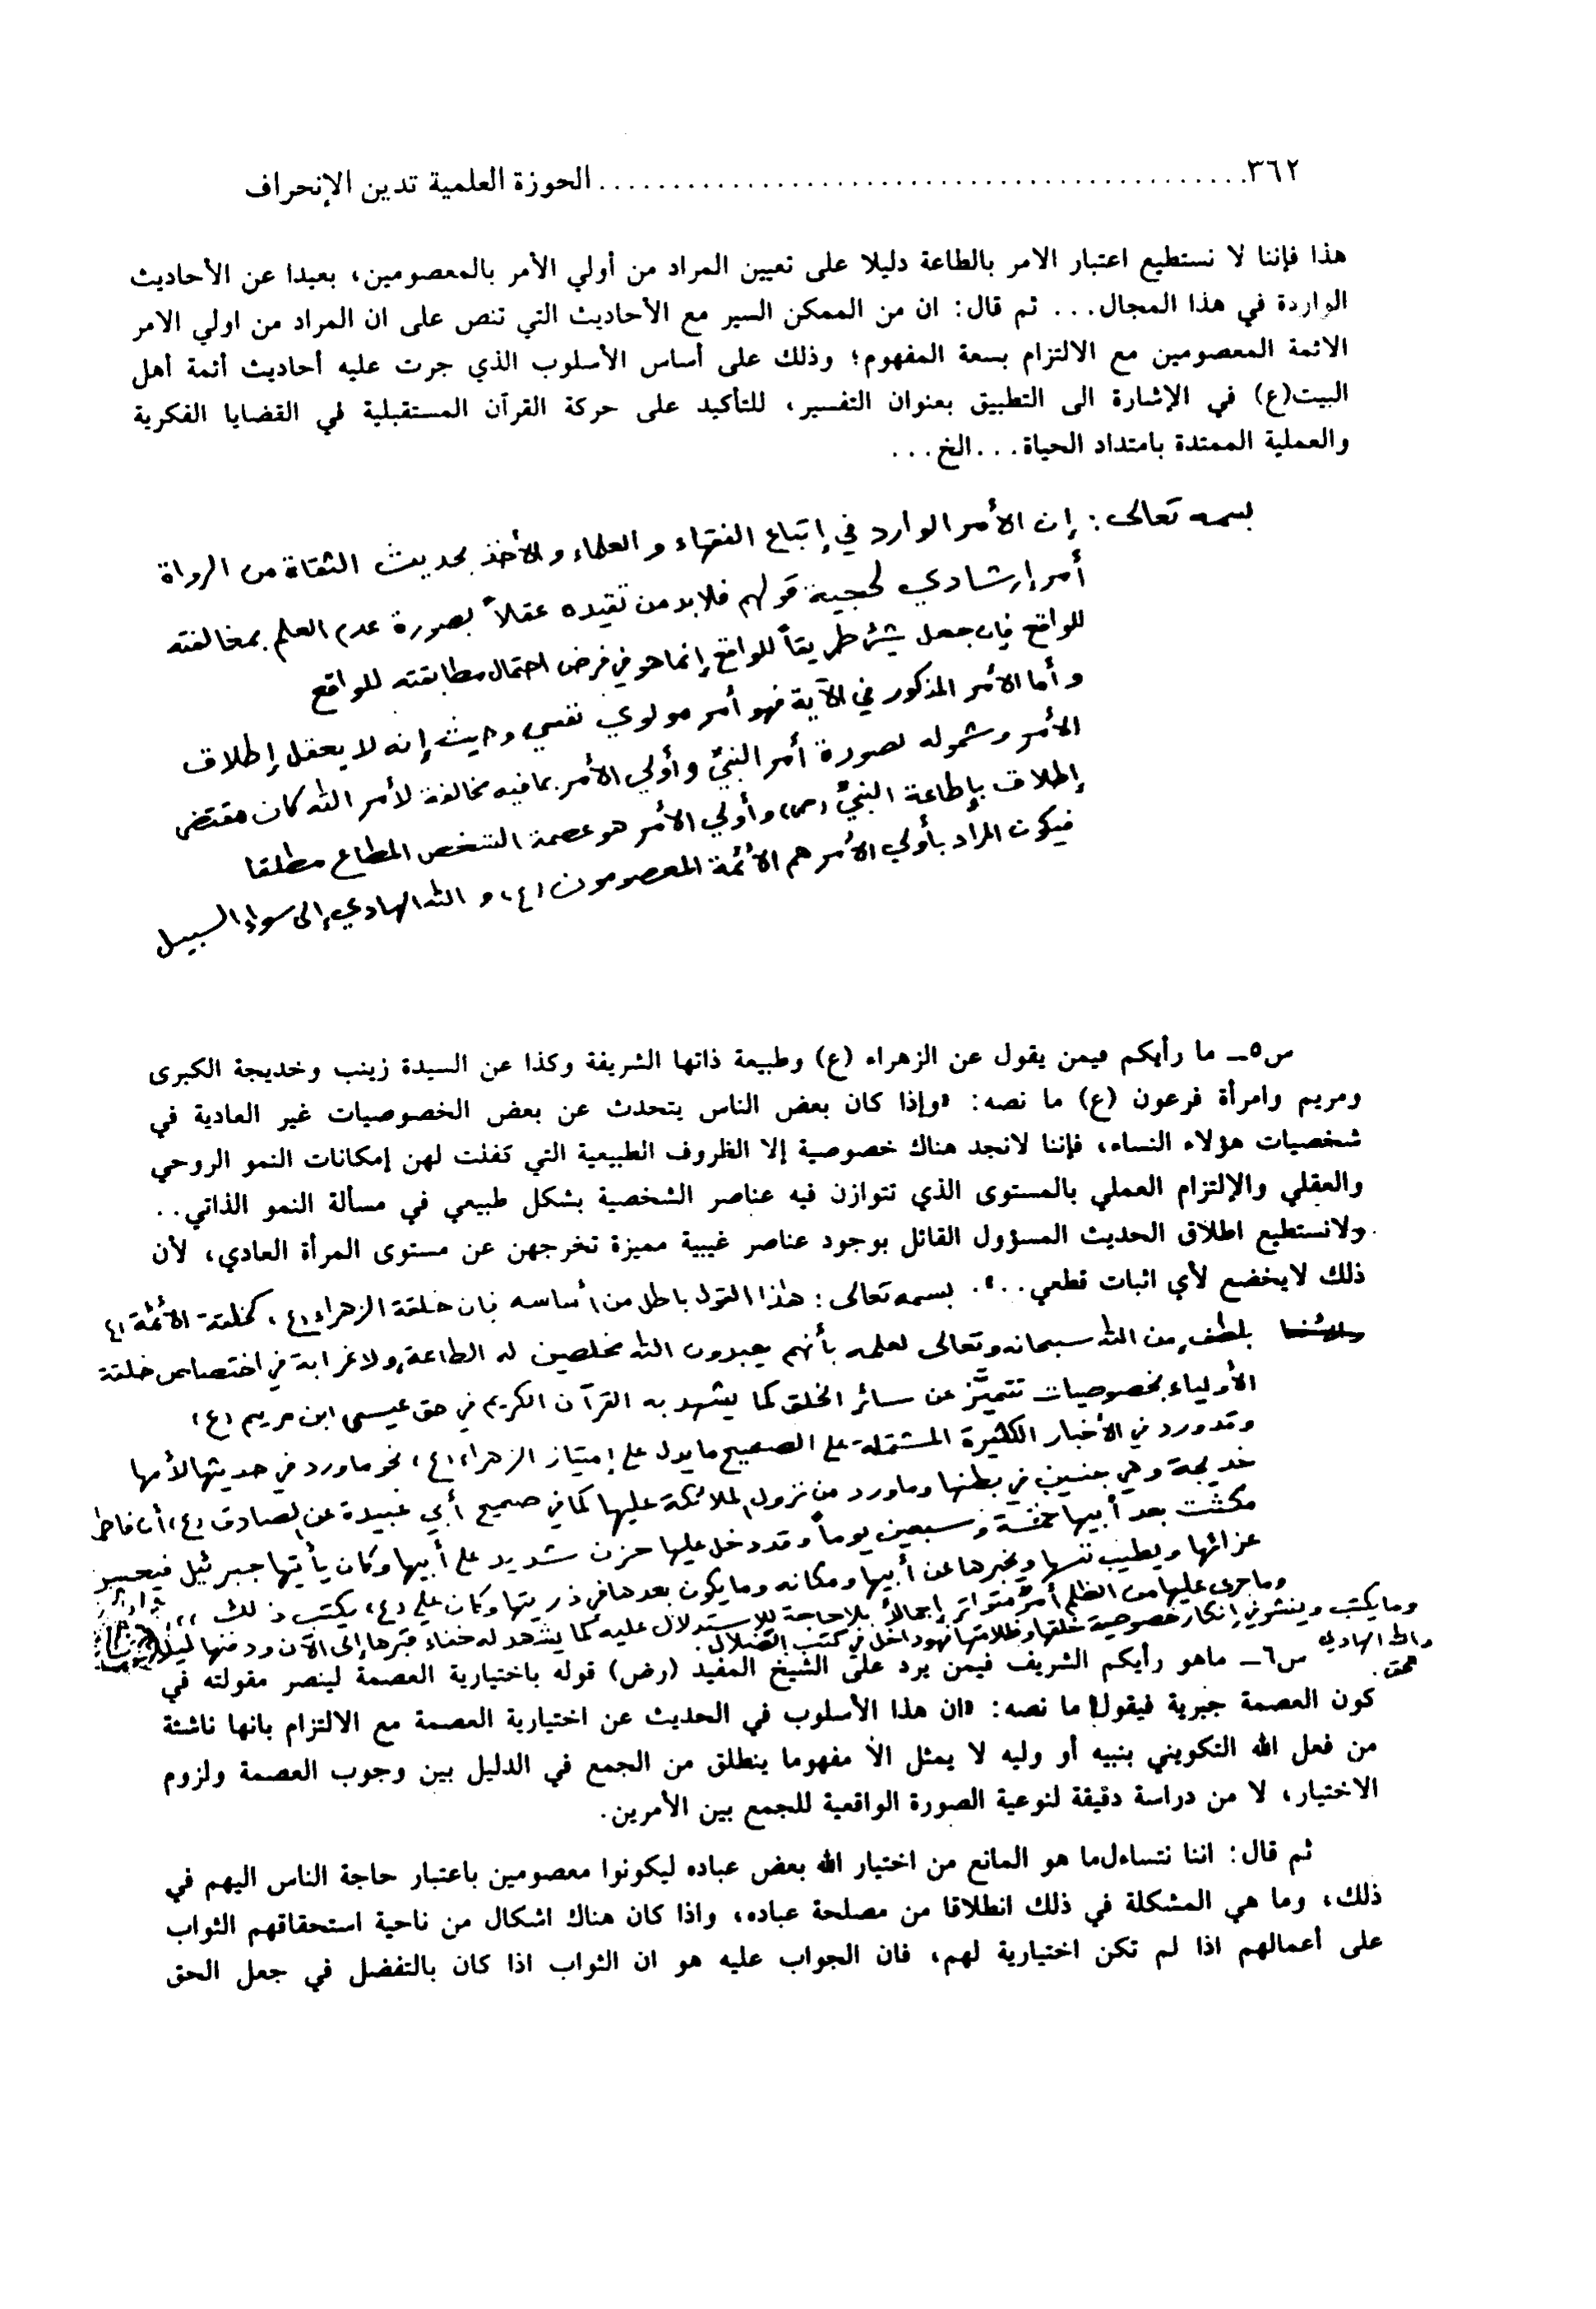 ٣٦٢ ............................................ الحوزة العلمية تدين الإنحراف
هذا فإننا لا نستطيع اعتبار الامر بالطاعة دليلا على تعيين المراد من أولي الأمر بالمعصومين، بعيدا عن الأحاديث
الواردة في هذا المجال... ثم قال: ان من الممكن السير مع الأحاديث التي تنص على ان المراد من اولي الامر
الائمة المعصومين مع الالتزام بسعة المفهوم؛ وذلك على أساس الأسلوب الذي جرت عليه أحاديث أئمة أهل
البيت(ع) في الإشارة الى التطبيق بعنوان التفسير، للتأكيد على حركة القرآن المستقبلية في القضايا الفكرية
والعملية الممتدة بامتداد الحياة...الخ...
بسمه تعالى: إن الأمر الوارد في إتباع الفقهاء والعلماء والأخذ بحديث الثقاة من الرواة
أمر إرشادي لحجية قولهم فلابد من تقيده عقلاً بصورة عدم العلم بمخالفته
للواقع فإن جعل شيئ طريقاً للواقع إنما هو في فرض احتمال مطابقته للواقع
وأما الأمر المذكور في الآية فهو أمر مولوي نفسي وحيث إنه لا يعقل إطلاق
الأمر وشموله لصورة أمر النبيّ وأولي الأمر بما فيه مخالفة لأمر الله كان مقتضى
إطلاق بإطاعة النبيّ (ص) وأولي الأمر هو عصمة الشخص المطاع مطلقا
فيكون المراد بأولي الأمر هم الأئمة المعصومون (ع) والله الهادي إلى سواء السبيل
س٥ـ ما رأيكم فيمن يقول عن الزهراء (ع) وطبيعة ذاتها الشريفة وكذا عن السيدة زينب وخديجة الكبرى
ومريم وامرأة فرعون (ع) ما نصه: «وإذا كان بعض الناس يتحدث عن بعض الخصوصيات غير العادية في
شخصيات هؤلاء النساء، فإننا لانجد هناك خصوصية إلا الظروف الطبيعية التي كفلت لهن إمكانات النمو الروحي
والعقلي والإلتزام العملي بالمستوى الذي تتوازن فيه عناصر الشخصية بشكل طبيعي في مسألة النمو الذاتي..
ولانستطيع اطلاق الحديث المسؤول القائل بوجود عناصر غيبية مميزة تخرجهن عن مستوى المرأة العادي، لأن
ذلك لايخضع لأي اثبات قطعي..». بسمه تعالى: هذا القول باطل من أساسه فإن خلقة الزهراء (ع) كخلقة الأئمة (ع)
بلطف من الله سبحانه وتعالى لعلمه بأنهم يعبدون الله مخلصين له الطاعة، ولا غرابة في اختصاص خلقة
الأولياء بخصوصيات تتميَّز عن سائر الخلق كما يشهد به القرآن الكريم في حق عيسى ابن مريم (ع)
وقد ورد في الأخبار الكثيرة المشتملة على الصحيح ما يدل على إمتياز الزهراء (ع) نحو ما ورد في حديثها لأمها
خديجة وهي جنين في بطنها وما ورد من نزول الملائكة عليها كما في صحيح أبي عبيدة عن الصادق (ع) أن فاطمة
مكثت بعد أبيها خمسة وسبعين يوماً وقد دخل عليها حزن شديد على أبيها وكان يأتيها جبرئيل فيحسن
عزائها ويطيب نفسها ويخبرها عن أبيها ومكانه وما يكون بعدها في ذريتها وكان علي (ع) يكتب ذلك
وما جرى عليها من الظلم أمر متواتر إجمالاً بلا حاجة للإستدلال عليه كما يشهد له خفاء قبرها إلى الآن ودفنها ليلاً
وما يكتب وينشر في إنكار خصوصية خلقها وظلامتها فهو داخل في كتب الضلال.
والله الهادي
س٦ـ ماهو رأيكم الشريف فيمن يرد على الشيخ المفيد (رض) قوله باختيارية العصمة لينصر مقولته في
كون العصمة جبرية فيقول ما نصه: «ان هذا الأسلوب في الحديث عن اختيارية العصمة مع الالتزام بانها ناشئة
من فعل الله التكويني بنبيه أو وليه لا يمثل الأ مفهوما ينطلق من الجمع في الدليل بين وجوب العصمة ولزوم
الاختيار، لا من دراسة دقيقة لنوعية الصورة الواقعية للجمع بين الأمرين.
ثم قال: اننا نتساءل ما هو المانع من اختيار الله بعض عباده ليكونوا معصومين باعتبار حاجة الناس اليهم في
ذلك، وما هي المشكلة في ذلك انطلاقا من مصلحة عباده، واذا كان هناك اشكال من ناحية استحقاقهم الثواب
على أعمالهم اذا لم تكن اختيارية لهم، فان الجواب عليه هو ان الثواب اذا كان بالتفضل في جعل الحق